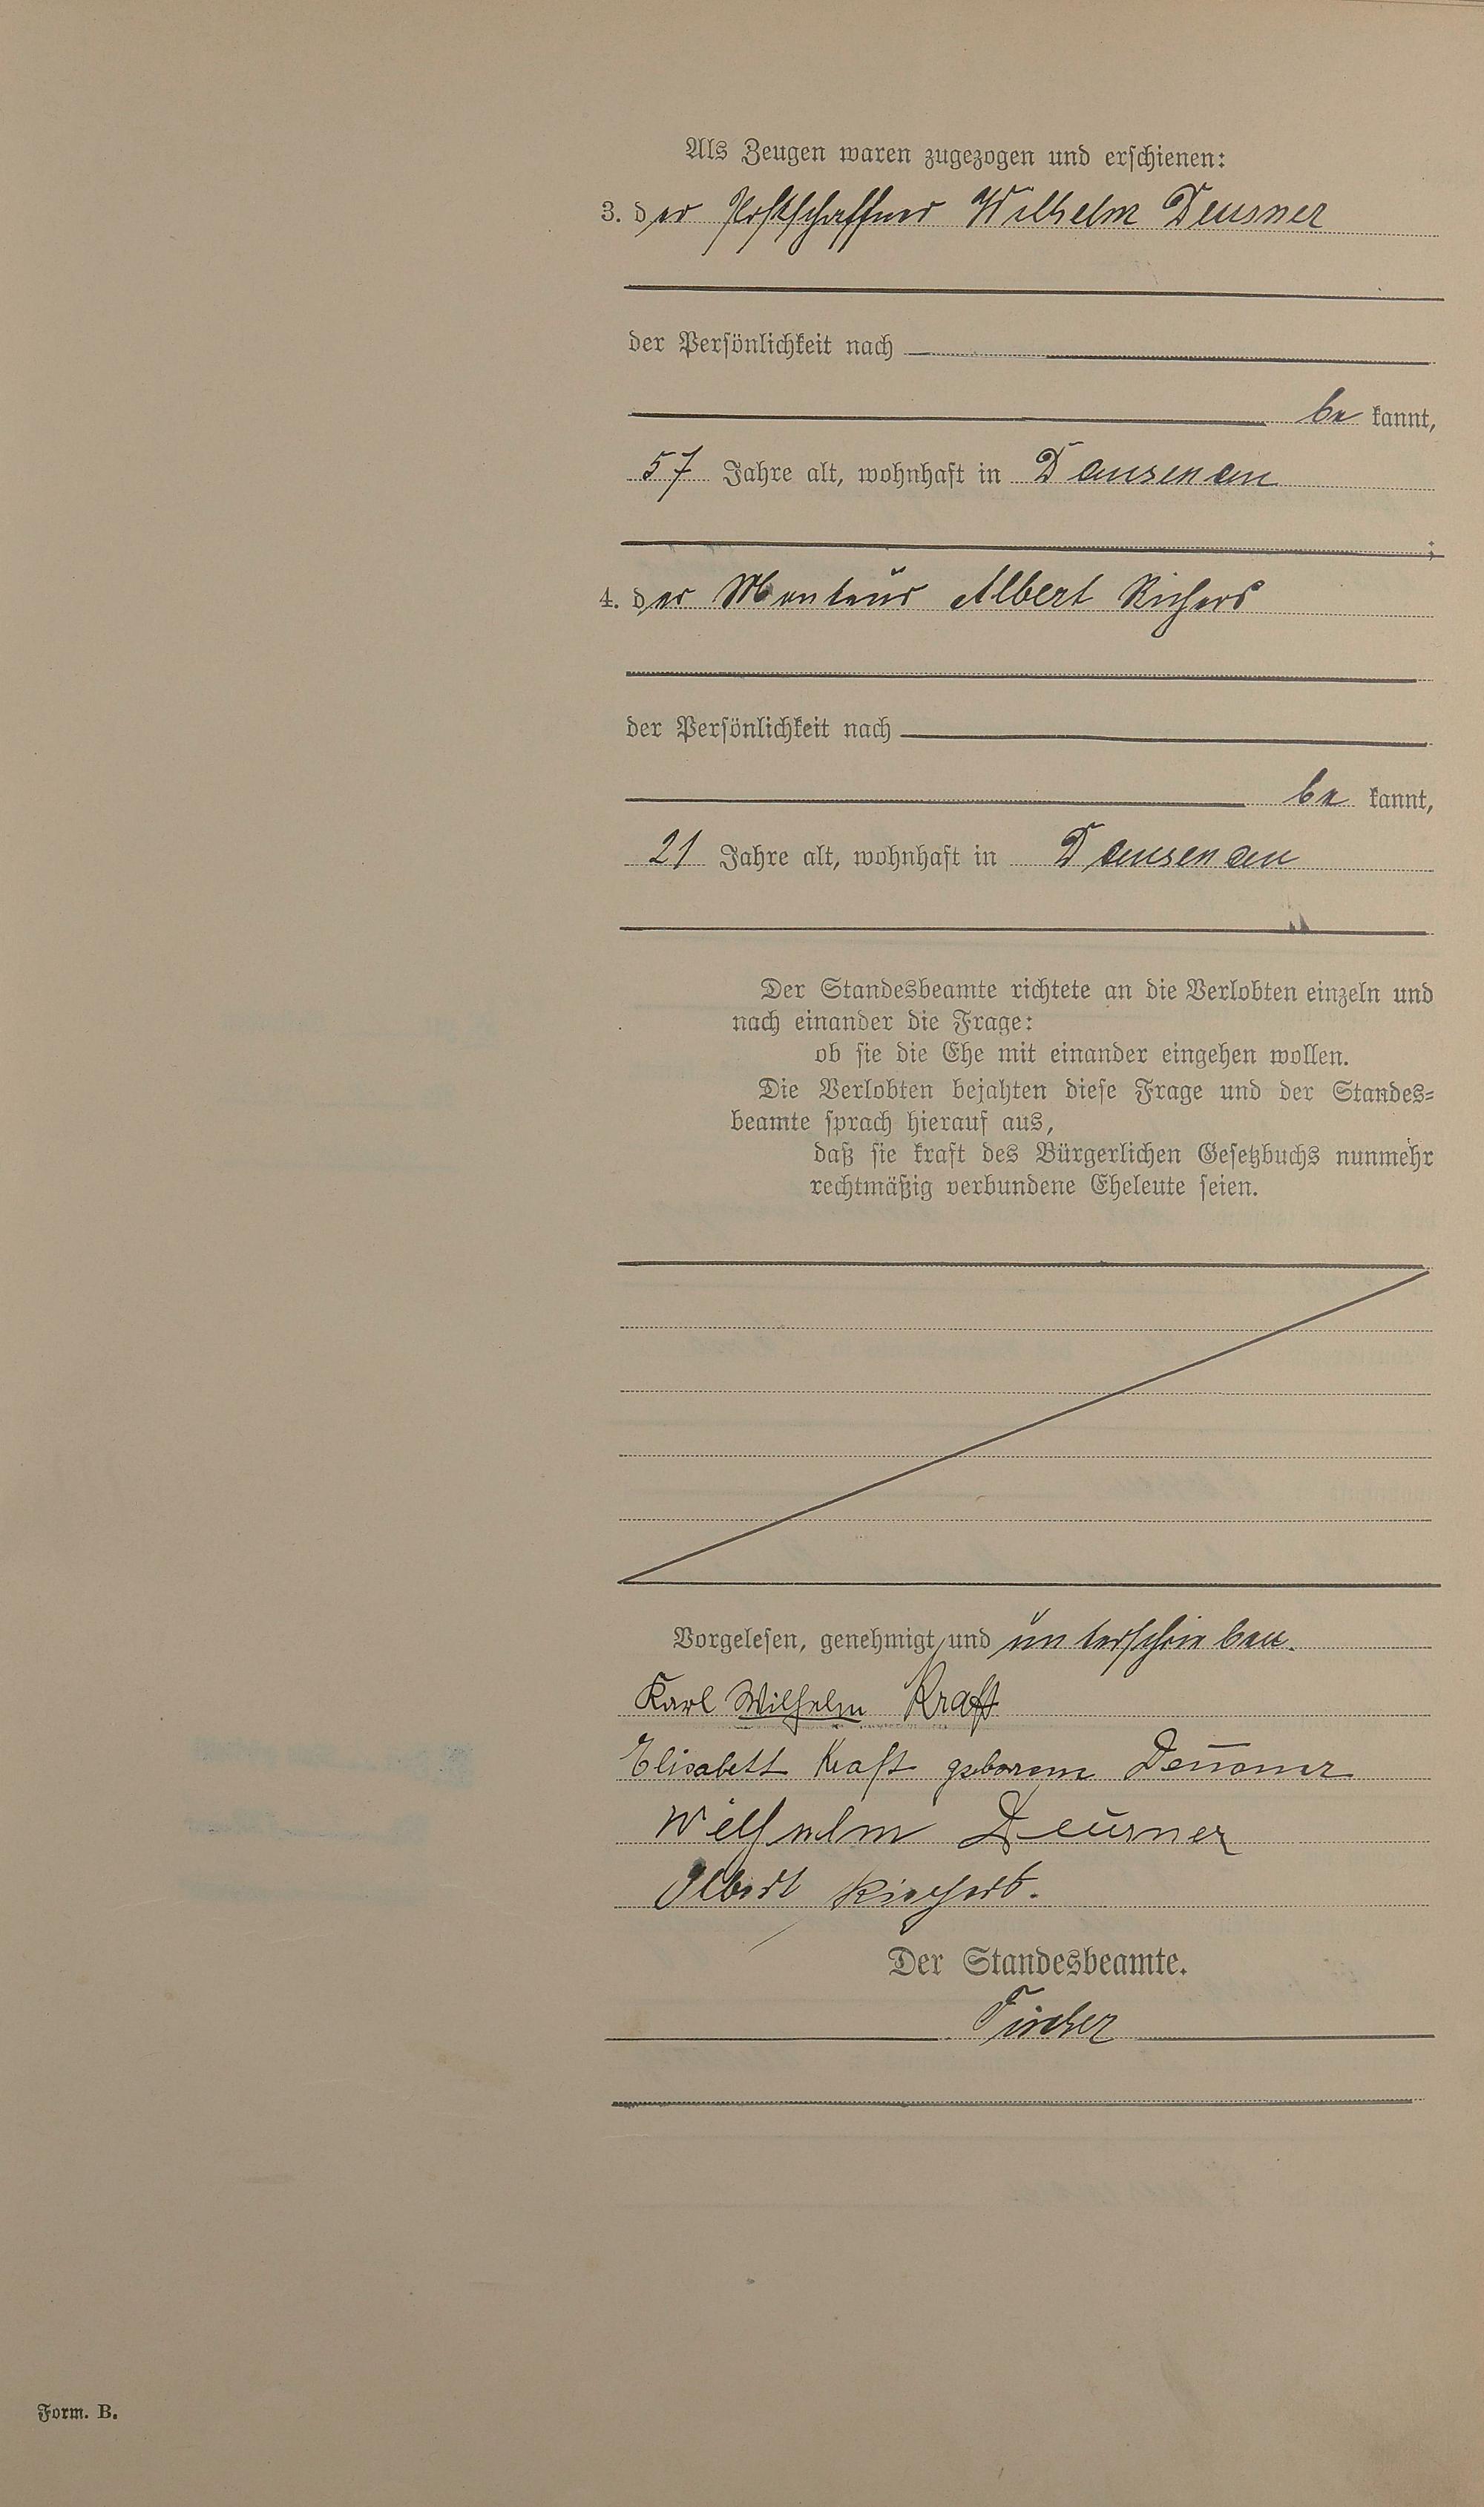 Als Zeugen waren zugezogen und erschienen:
3. der Postschaffner Wilhelm Deusner
der Persönlichkeit nach
be kannt,
57 Jahre alt, wohnhaft in Dausenau
;
4. der Monteur Albert
der Persönlichkeit nach
be kannt,
21 Jahre alt, wohnhaft in Dausenau
Der Standesbeamte richtete an die Verlobten einzeln und
nach einander die Frage:
ob sie die Ehe mit einander eingehen wollen.
Die Verlobten bejahten diese Frage und der Standes=
beamte sprach hierauf aus,
daß sie kraft des Bürgerlichen Gesetzbuchs nunmehr
rechtmäßig verbundene Eheleute seien.
Vorgelesen, genehmigt und unterschrieben.
Karl Wilhelm Kraft
Elisabett Kraft geborene
Wilhelm Deusner
Albert
Der Standesbeamte.
Form. B.